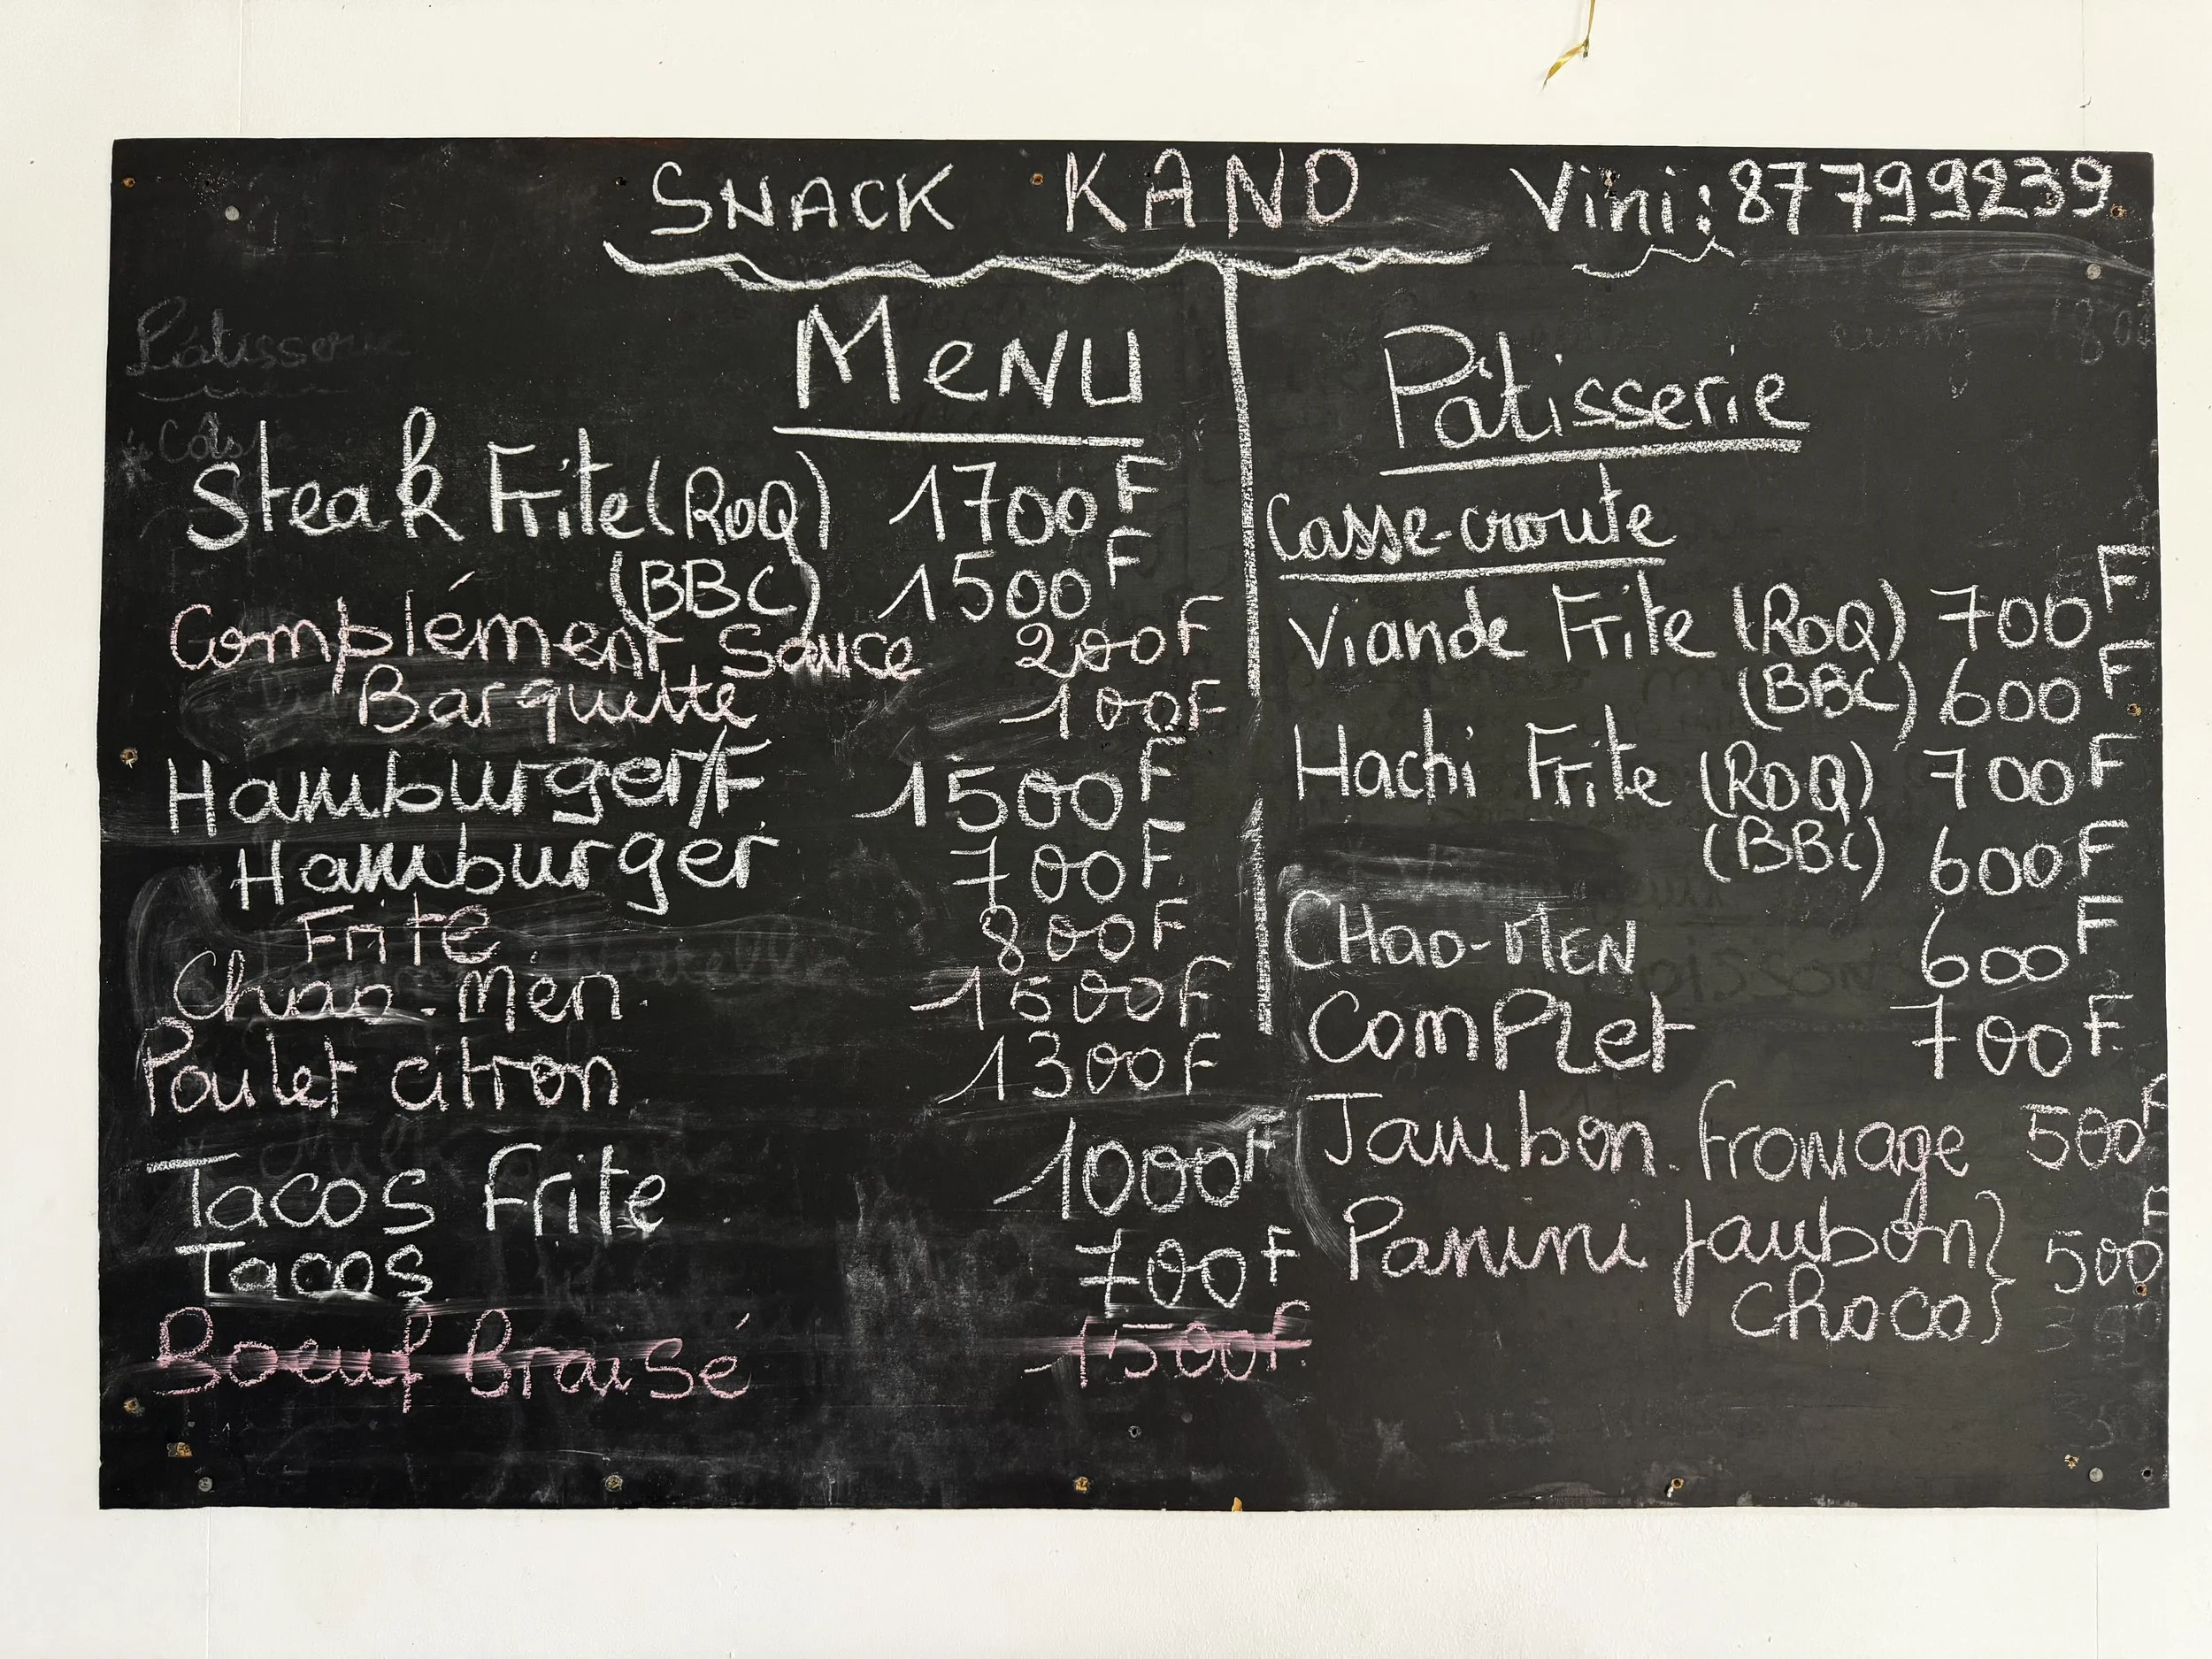 SNACK KANO Vini: 87 799239
Menu
Steak Frite (RoQ) 1700F
(BBC) 1500F
Complément Sauce 200F
Barquette 100F
Hamburger/F 1500F
Hamburger 700F
Frite 800F
Chao-Men 1500F
Poulet citron 1300F
Tacos Frite 1000F
Tacos 700F
Boeuf Braisé 1500F
Pâtisserie
Casse-croute
Viande Frite (RoQ) 700F
(BBC) 600F
Hachi Frite (RoQ) 700F
(BBC) 600F
CHao-MEN 600F
Complet 700F
Jambon fromage 500F
Panini jambon } 500F
choco }
Pâtisserie